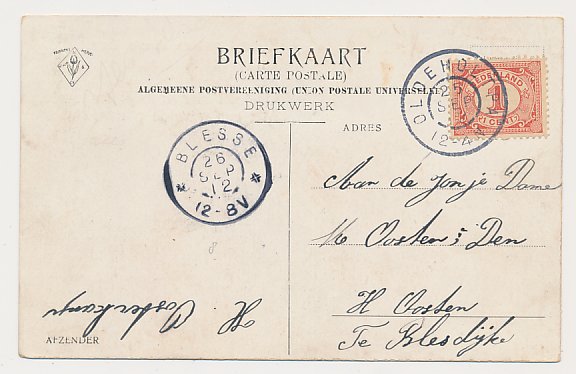 BRIEFKAART
(CARTE POSTALE)
ALGEMEENE POSTVEREENIGING (UNION POSTALE UNIVERSELLE)
DRUKWERK
ADRES
OLDEHOLTPA
25
SEP
12-4
NEDERLAND
1
1 CENT
BLESSE
26
SEP
12
12-8V
Aan de Jonje Dame
Oosten Den
H Oosten
Te Blesdijke
H Oosterkamp
AFZENDER
8